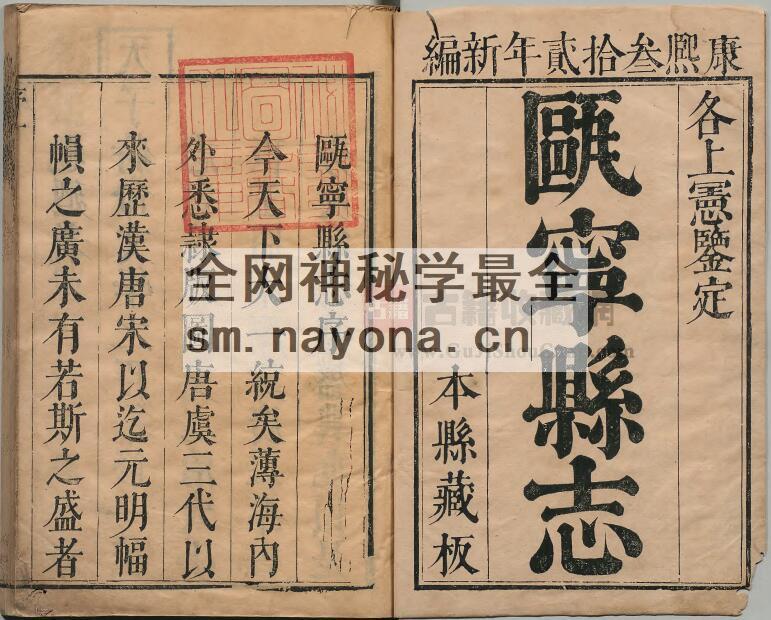 康熙叁拾貳年新編
各上憲鑒定
甌寧縣志
本縣藏板
甌寧縣志序
今天下大一統矣薄海內
外悉隸版圖唐虞三代以
來歷漢唐宋以迄元明幅
幀之廣未有若斯之盛者
序一
全网神秘学最全
sm.nayona.cn